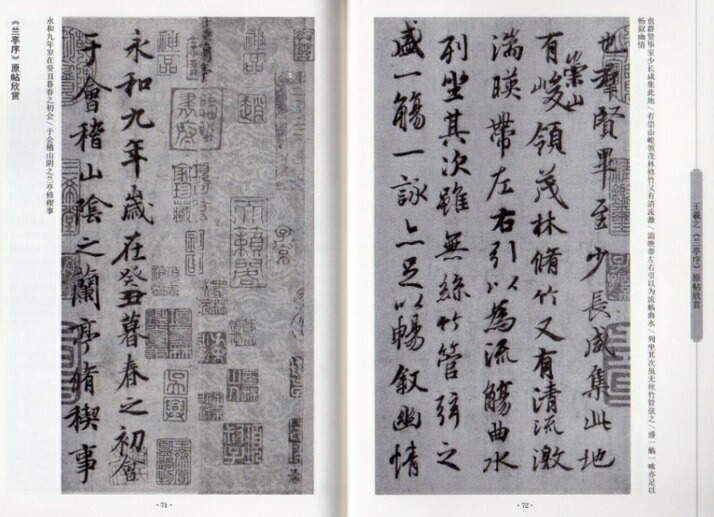 《兰亭序》原帖欣赏
永和九年岁在癸丑暮春之初会\于会稽山阴之兰亭修禊事
神品
趙
神品
天籟閣
永和九年歲在癸丑暮春之初會
于會稽山陰之蘭亭脩禊事
·71·
王羲之《兰亭序》原帖欣赏
也群贤毕至少长咸集此地\有崇山峻领茂林修竹又有清流激\湍映带左右引以为流觞曲水\列坐其次虽无丝竹管弦之\盛一觞一咏亦足以
畅叙幽情
也羣賢畢至少長咸集此地
有崇山峻領茂林脩竹又有清流激
湍暎帶左右引以為流觴曲水
列坐其次雖無絲竹管弦之
盛一觴一詠亦足以暢敘幽情
·72·